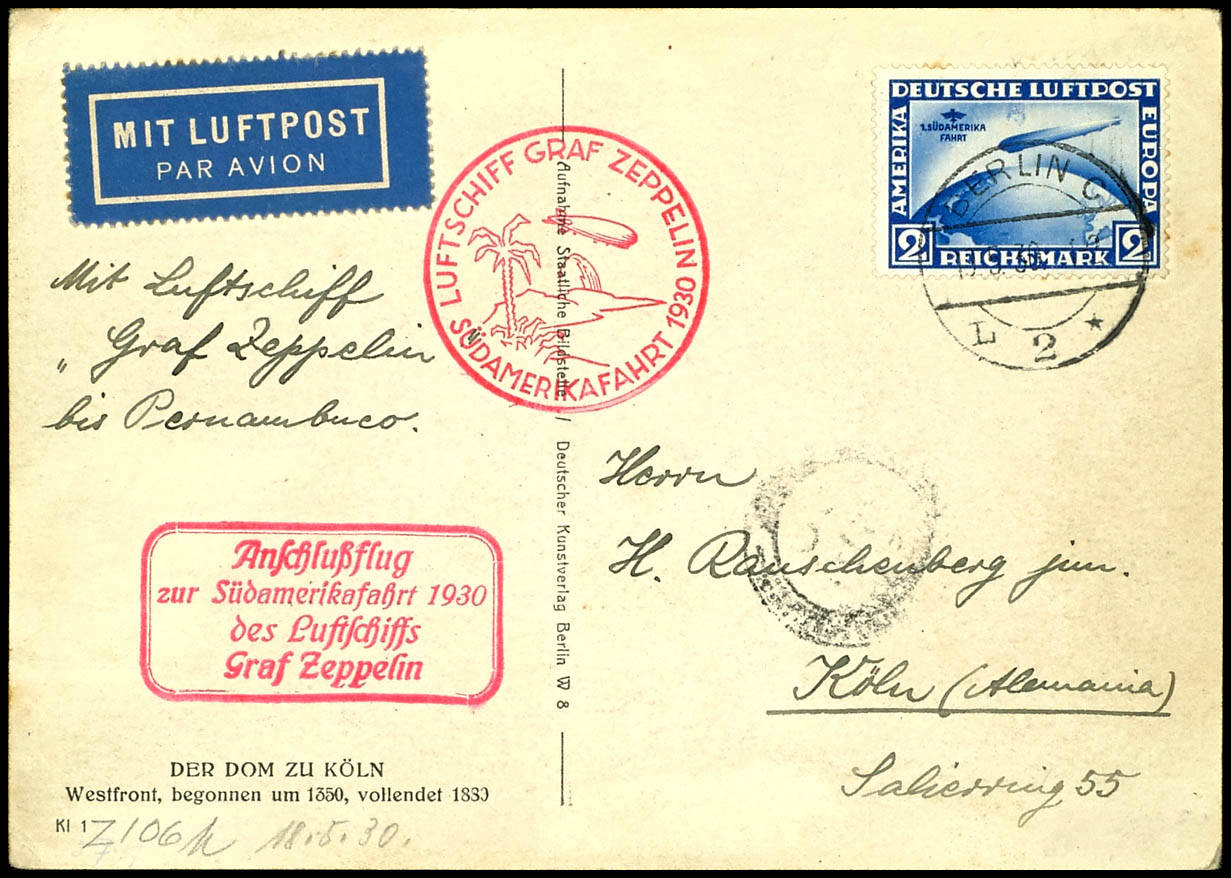 MIT LUFTPOST
PAR AVION
LUFTSCHIFF GRAF ZEPPELIN
SÜDAMERIKAFAHRT 1930
DEUTSCHE LUFTPOST
AMERIKA
EUROPA
1.SÜDAMERIKA
FAHRT
2 REICHSMARK 2
BERLIN C
L 2 *
Mit Luftschiff
„Graf Zeppelin
bis Pernambuco.
Aufnahme Staatliche Bildstelle / Deutscher Kunstverlag Berlin W 8
Herrn
H. Rauschenberg jun.
Köln (Alemania)
Salierring 55
Anschlußflug
zur Südamerikafahrt 1930
des Luftschiffs
Graf Zeppelin
DER DOM ZU KÖLN
Westfront, begonnen um 1350, vollendet 1880
Kl 1
18.5.30.